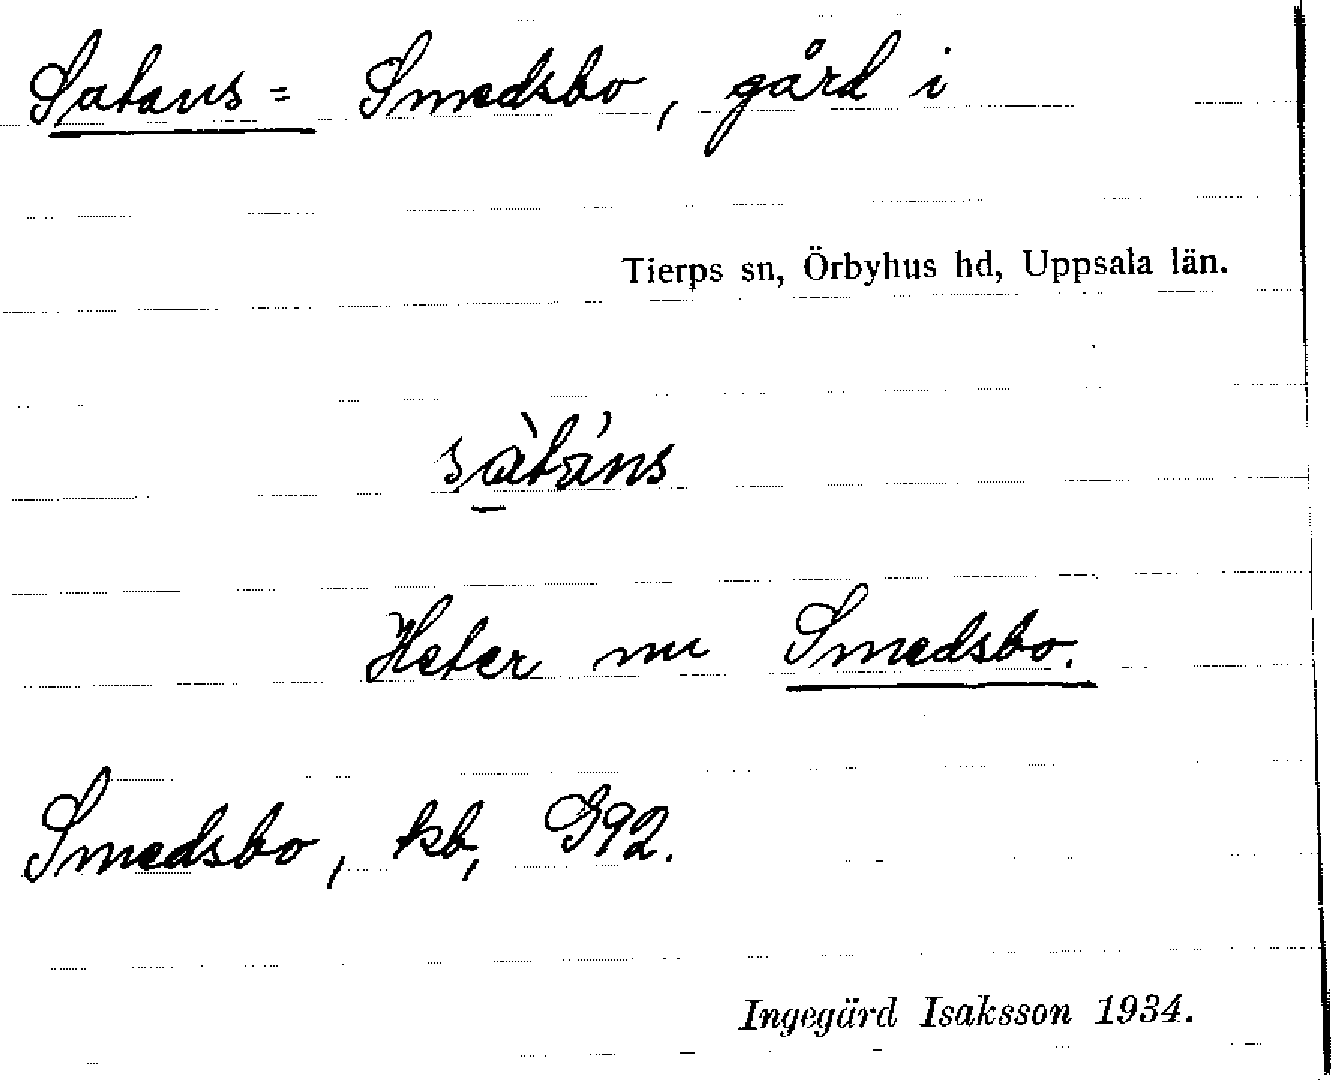 Satans= Smedsbo, gård i
Tierps sn, Örbyhus hd, Uppsala län.
sàtáns
Heter nu Smedsbo.
Smedsbo, kb, G92.
Ingegärd Isaksson 1934.